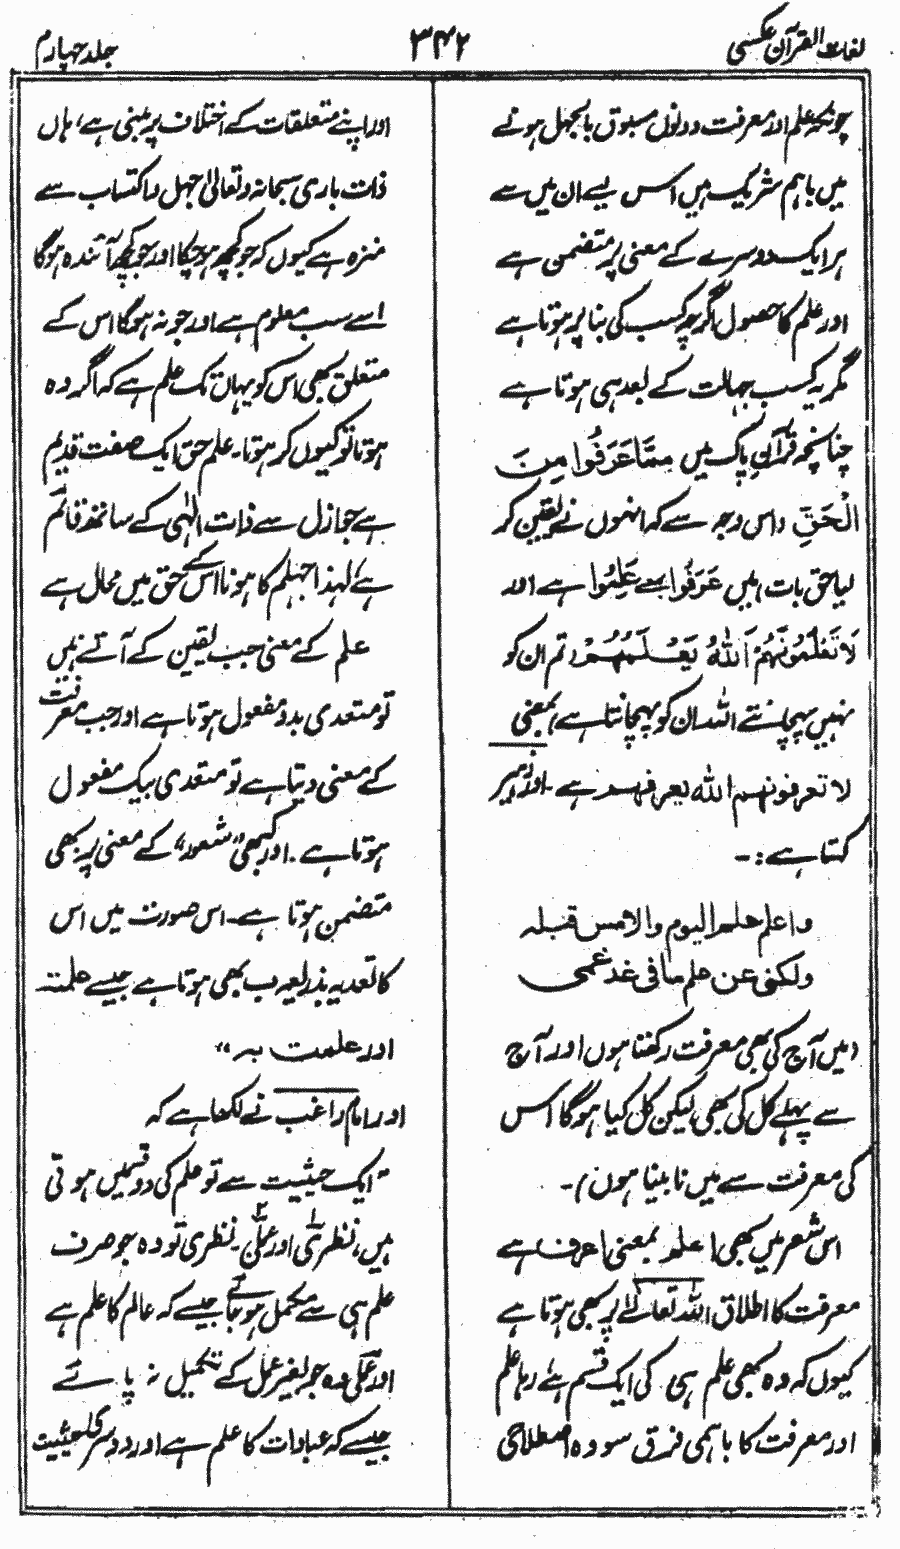 لغات القرآن عکسی
۳۴۲
جلد چہارم
چونکہ علم اور معرفت دونوں مسبوق بالجہل ہونے
میں باہم شریک ہیں اس لیے ان میں سے
ہر ایک دوسرے کے معنی پر متضمن ہے
اور علم کا حصول اگرچہ کسب کی بنا پر ہوتا ہے
مگر یہ کسب جہالت کے بعد ہی ہوتا ہے
چنانچہ قرآن پاک میں مِمَّا عَرَفُوا مِنَ
الْحَقِّ (اس وجہ سے کہ انہوں نے یقین کر
لیا حق بات) میں عَرَفُوا سے عَلِمُوا ہے اور
لَا تَعْلَمُونَهُمُ اَللّٰهُ يَعْلَمُهُمْ (تم ان کو
نہیں پہچانتے اللہ ان کو پہچانتا ہے) بمعنی
لا تعرفونهم الله يعرفهم ہے۔ اور زہیر
کہتا ہے :۔
واعلم علم اليوم والامس قبله
ولكننى عن علم ما فى غد عمى
(میں آج کی بھی معرفت رکھتا ہوں اور آج
سے پہلے کل کی بھی، لیکن کل کیا ہوگا اس
کی معرفت سے میں نابینا ہوں)۔
اس شعر میں بھی اعلم بمعنی اعرف ہے
معرفت کا اطلاق اللہ تعالےٰ پر بھی ہوتا ہے
کیوں کہ وہ بھی علم ہی کی ایک قسم ہے، رہا علم
اور معرفت کا باہمی فرق سو وہ اصطلاحی
اور اپنے متعلقات کے اختلاف پر مبنی ہے، ہاں
ذات باری سبحانہ و تعالیٰ جہل و اکتساب سے
منزہ ہے کیوں کہ جو کچھ ہو چکا اور جو کچھ آئندہ ہوگا
اسے سب معلوم ہے اور جو نہ ہوگا اس کے
متعلق بھی اس کو یہاں تک علم ہے کہ اگر وہ
ہوتا تو کیوں کر ہوتا۔ علم حق ایک صفت قدیم
ہے جو ازل سے ذات الٰہی کے ساتھ قائم
ہے، لہذا جہلم کا ہونا اس کے حق میں محال ہے
علم کے معنی جب یقین کے آتے ہیں
تو متعدی بدو مفعول ہوتا ہے اور جب معرفت
کے معنی دیتا ہے تو متعدی بیک مفعول
ہوتا ہے۔ اور کبھی "شعور" کے معنی پر بھی
متضمن ہوتا ہے۔ اس صورت میں اس
کا تعدیہ بذریعہ ب بھی ہوتا ہے جیسے علمته
اور علمت به"
اور امام راغب نے لکھا ہے کہ
"ایک حیثیت سے تو علم کی دو قسمیں ہوتی
ہیں، نظری اور عملی۔ نظری تو وہ جو صرف
علم ہی سے مکمل ہو جائے جیسے کہ عالم کا علم ہے
اور عملی وہ جو بغیر عمل کے تکمیل نہ پائے
جیسے کہ عبادات کا علم ہے اور دوسری حیثیت